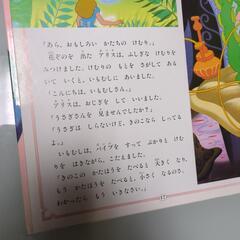 「あら、おもしろい かたちの けむり。」
花ぞのを 出た アリスは、ふしぎな けむりを
みつけました。けむりの もとを さがして あるいて
いくと、いもむしに あいました。
「こんにちは、いもむしさん。」
アリスは、おじぎを して いいました。
「うさぎさんを 見ませんでしたか?」
「うさぎは しらないけど、きのこなら しってる
よ。」
いもむしは、パイプを すって ぷかりと けむり
を はきながら、こたえました。
「きのこの かたほうを たべると 大きく なり、
もう かたほうを たべると、小さく なるのさ。
わかったら もう いきなさい。」